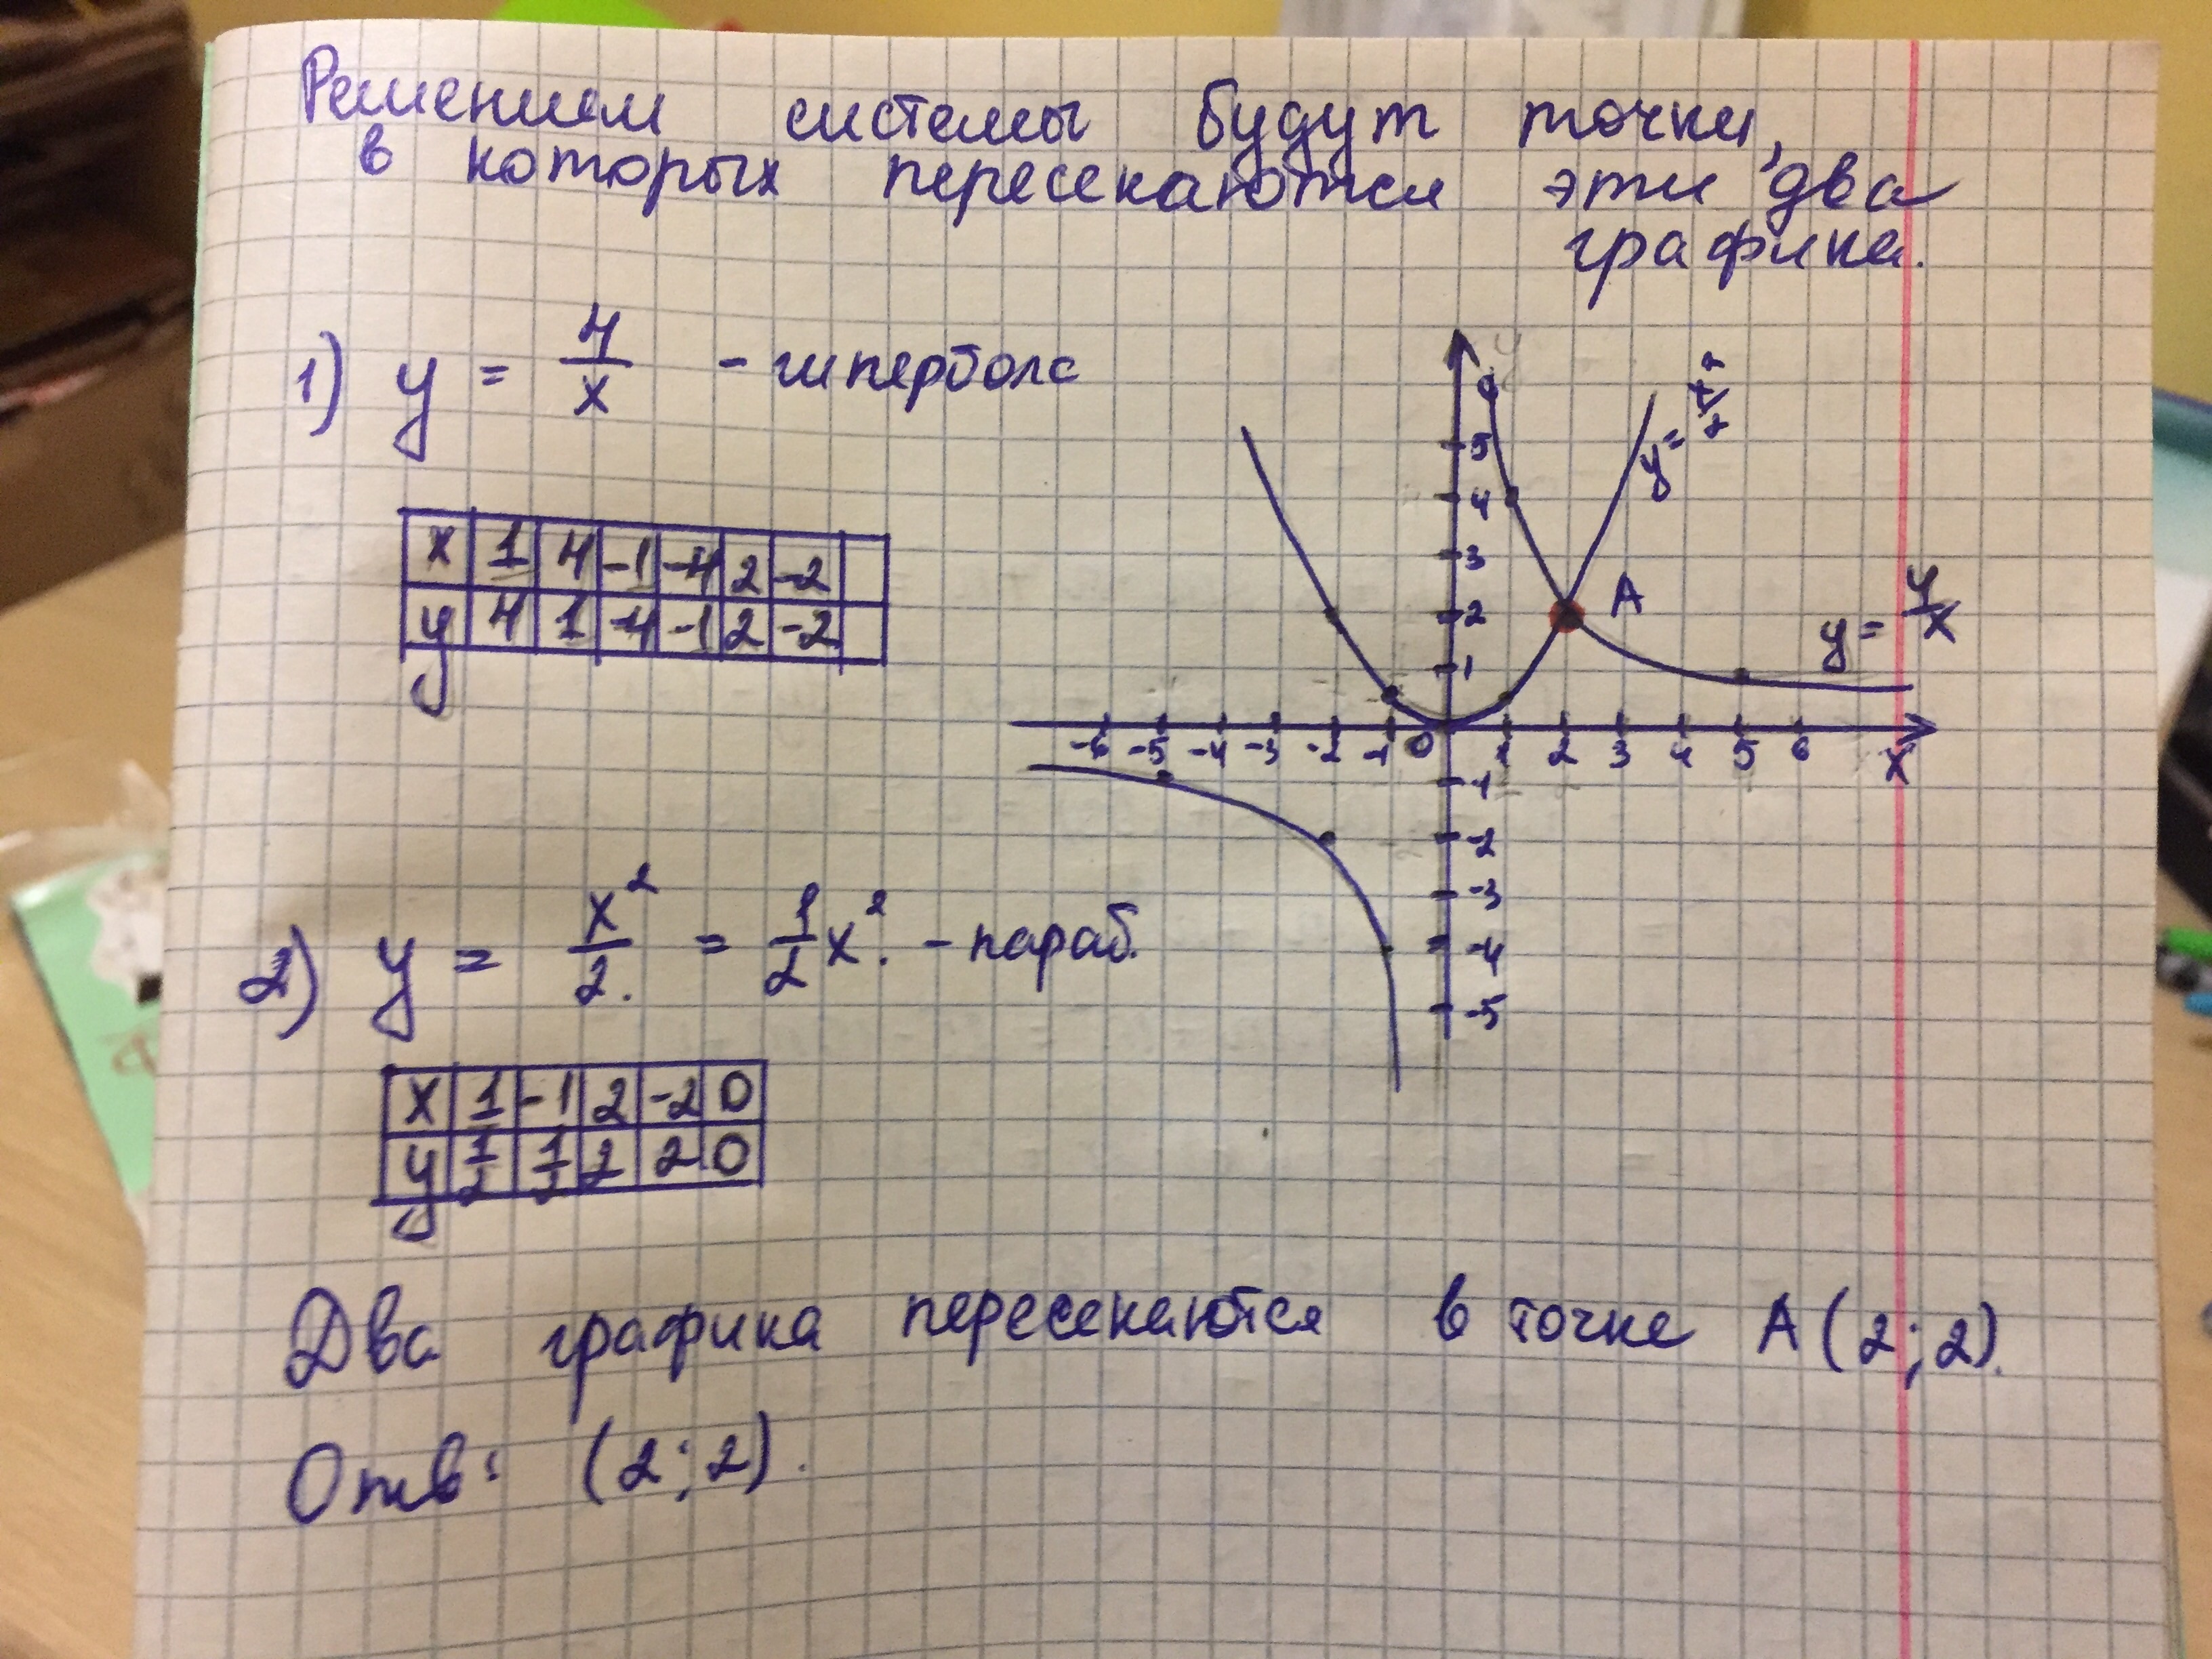 Решением системы будут точки,
в которых пересекаются эти два
графика.
1) y = 4/x - гипербола
x 1 4 -1 -4 2 -2
y 4 1 -4 -1 2 -2
y
5
4
3
2
1
A
y = x²/2
y = 4/x
-6 -5 -4 -3 -2 -1 0 1 2 3 4 5 6 x
-1
-2
-3
-4
-5
2) y = x²/2. = 1/2 x². - параб.
x 1 -1 2 -2 0
y 1/2 1/2 2 2 0
Два графика пересекаются в точке A(2;2).
Отв: (2;2).